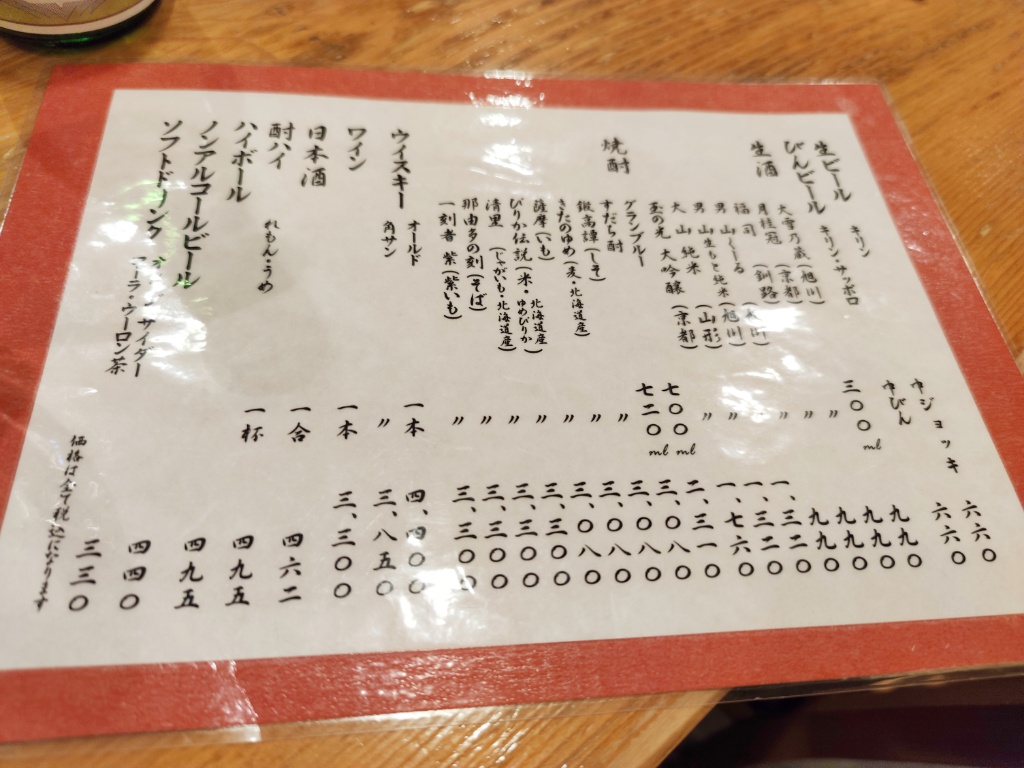 生ビール キリン 中ジョッキ 六六〇
びんビール キリン・サッポロ 中びん 六六〇
生酒 大雪乃蔵(旭川) 三〇〇ml 九九〇
月桂冠(京都) 〃 九九〇
福司(釧路) 〃 九九〇
男山 (旭川) 〃 九九〇
男山生もと純米(旭川) 〃 一、三二〇
大山 純米(山形) 〃 一、三二〇
玉の光 大吟醸(京都) 〃 一、七六〇
焼酎 グランブルー 七〇〇ml 二、三一〇
すだち酎 七二〇ml 三、〇八〇
鍛高譚(しそ) 〃 三、〇八〇
きたのゆめ(麦・北海道産) 〃 三、〇八〇
薩摩(いも) 〃 三、〇八〇
ぴりか伝説(米・ゆめぴりか 北海道産) 〃 三、三〇〇
清里(じゃがいも・北海道産) 〃 三、三〇〇
那由多の刻(そば) 〃 三、三〇〇
一刻者 紫(紫いも) 〃 三、三〇〇
ウイスキー オールド 一本 四、四〇〇
角サン 〃 三、八五〇
ワイン 一本 三、三〇〇
日本酒 一合 四六二
酎ハイ れもん・うめ 一杯 四九五
ハイボール 四九五
ノンアルコールビール 四四〇
ソフトドリンク サイダー コーラ・ウーロン茶 三三〇
価格は全て税込になります